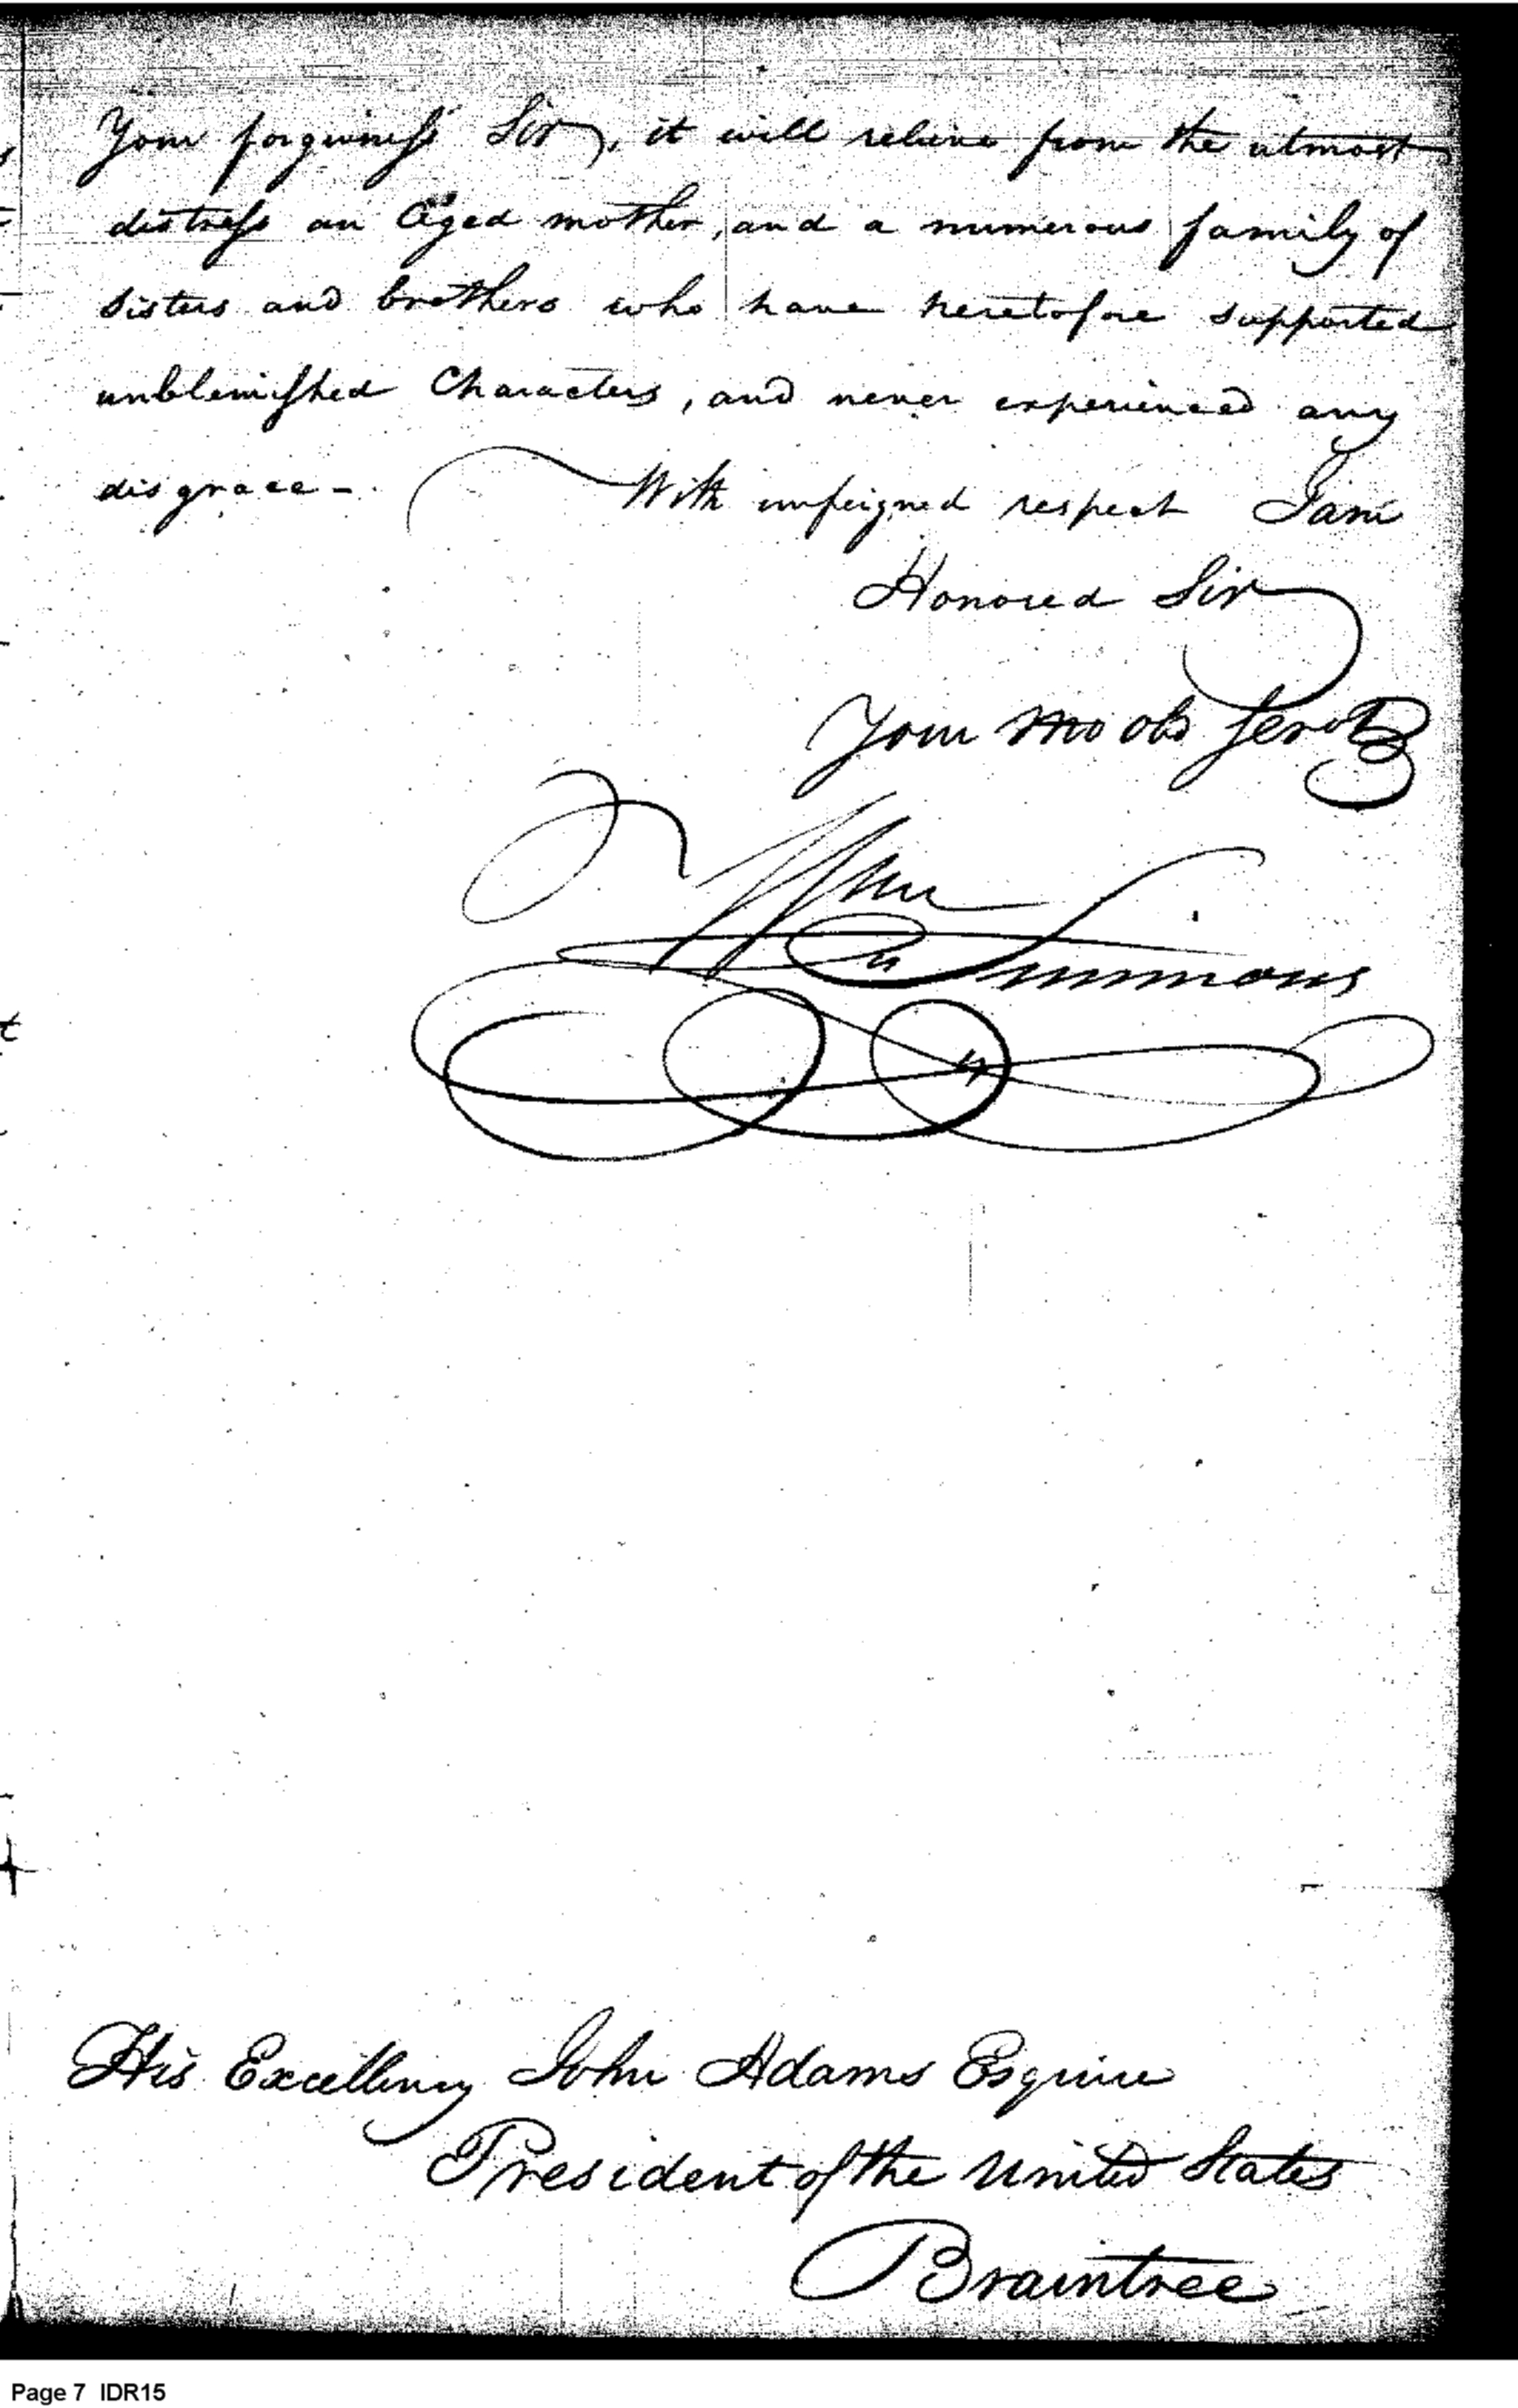 Your forgiviness Sir, it will relieve from the utmost
distress an Aged mother, and a numerous family of
Sisters and brothers who have heretofore supported
unblemished Characters, and never experienced any
disgrace - With unfeigned respect I am
Honored Sir
Your mo ob Servt
Wm Simmons
His Excellency John Adams Esquire
President of the United States
Braintree
Page 7 IDR15